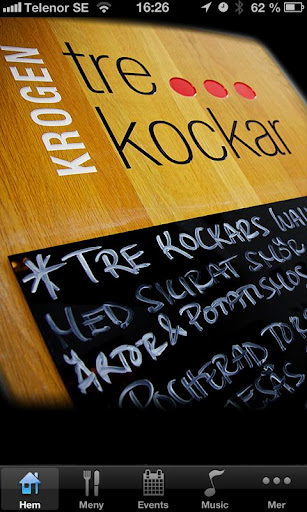 Telenor SE 16:26 62 %
KROGEN
tre...
kockar
TRE KOCKARS
MED SKIRAT SMÖR
ÄRTOR & POTATISMOS
POCHERAD TORS
Hem Meny Events Music Mer